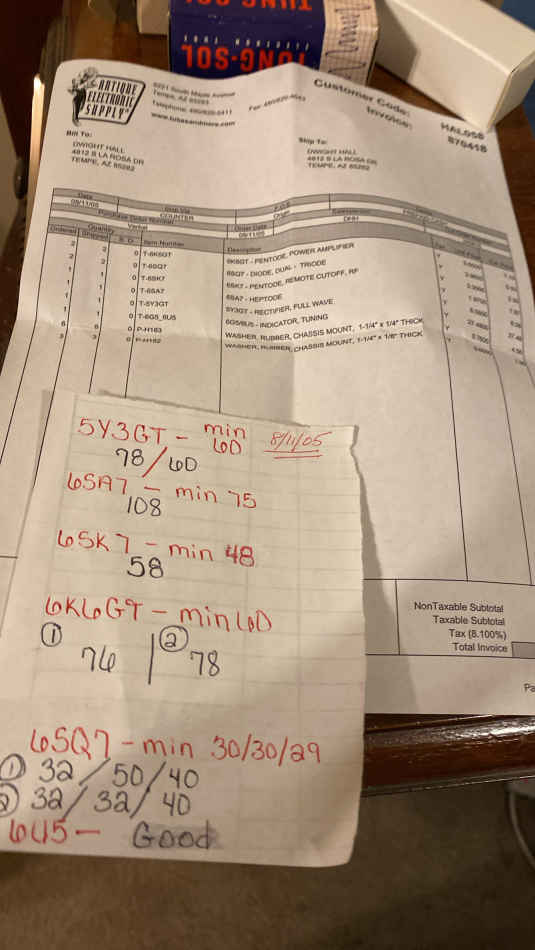 TUNG-SOL
ANTIQUE
ELECTRONIC
SUPPLY
6221 South Maple Avenue
Tempe, AZ 85283
Telephone: 480/820-5411
Fax: 480/820-4643
www.tubesandmore.com
Customer Code: HAL058
Invoice: 870418
Bill To:
DWIGHT HALL
4812 S LA ROSA DR
TEMPE, AZ 85282
Ship To:
DWIGHT HALL
4812 S LA ROSA DR
TEMPE, AZ 85282
Date Ship Via F.O.B.
08/11/05 COUNTER Origin
Purchase Order Number Order Date Salesperson
Verbal 08/11/05 DHH
Quantity
Ordered Shipped B. O. Item Number Description
2 2 0 T-6K6GT 6K6GT - PENTODE, POWER AMPLIFIER Y
2 2 0 T-6SQ7 6SQ7 - DIODE, DUAL - TRIODE Y
1 1 0 T-6SK7 6SK7 - PENTODE, REMOTE CUTOFF, RF Y
1 1 0 T-6SA7 6SA7 - HEPTODE Y
1 1 0 T-5Y3GT 5Y3GT - RECTIFIER, FULL WAVE Y
1 1 0 T-6G5_6U5 6G5/6U5 - INDICATOR, TUNING Y
6 6 0 P-H163 WASHER, RUBBER, CHASSIS MOUNT, 1-1/4" x 1/4" THICK Y
3 3 0 P-H162 WASHER, RUBBER, CHASSIS MOUNT, 1-1/4" x 1/8" THICK Y
5Y3GT - min 60 8/11/05
78/60
6SA7 - min 75
108
6SK7 - min 48
58
6K6GT - min 60
① 76 | ② 78
6SQ7 - min 30/30/29
① 32/50/40
② 32/32/40
6U5 - Good
NonTaxable Subtotal
Taxable Subtotal
Tax (8.100%)
Total Invoice